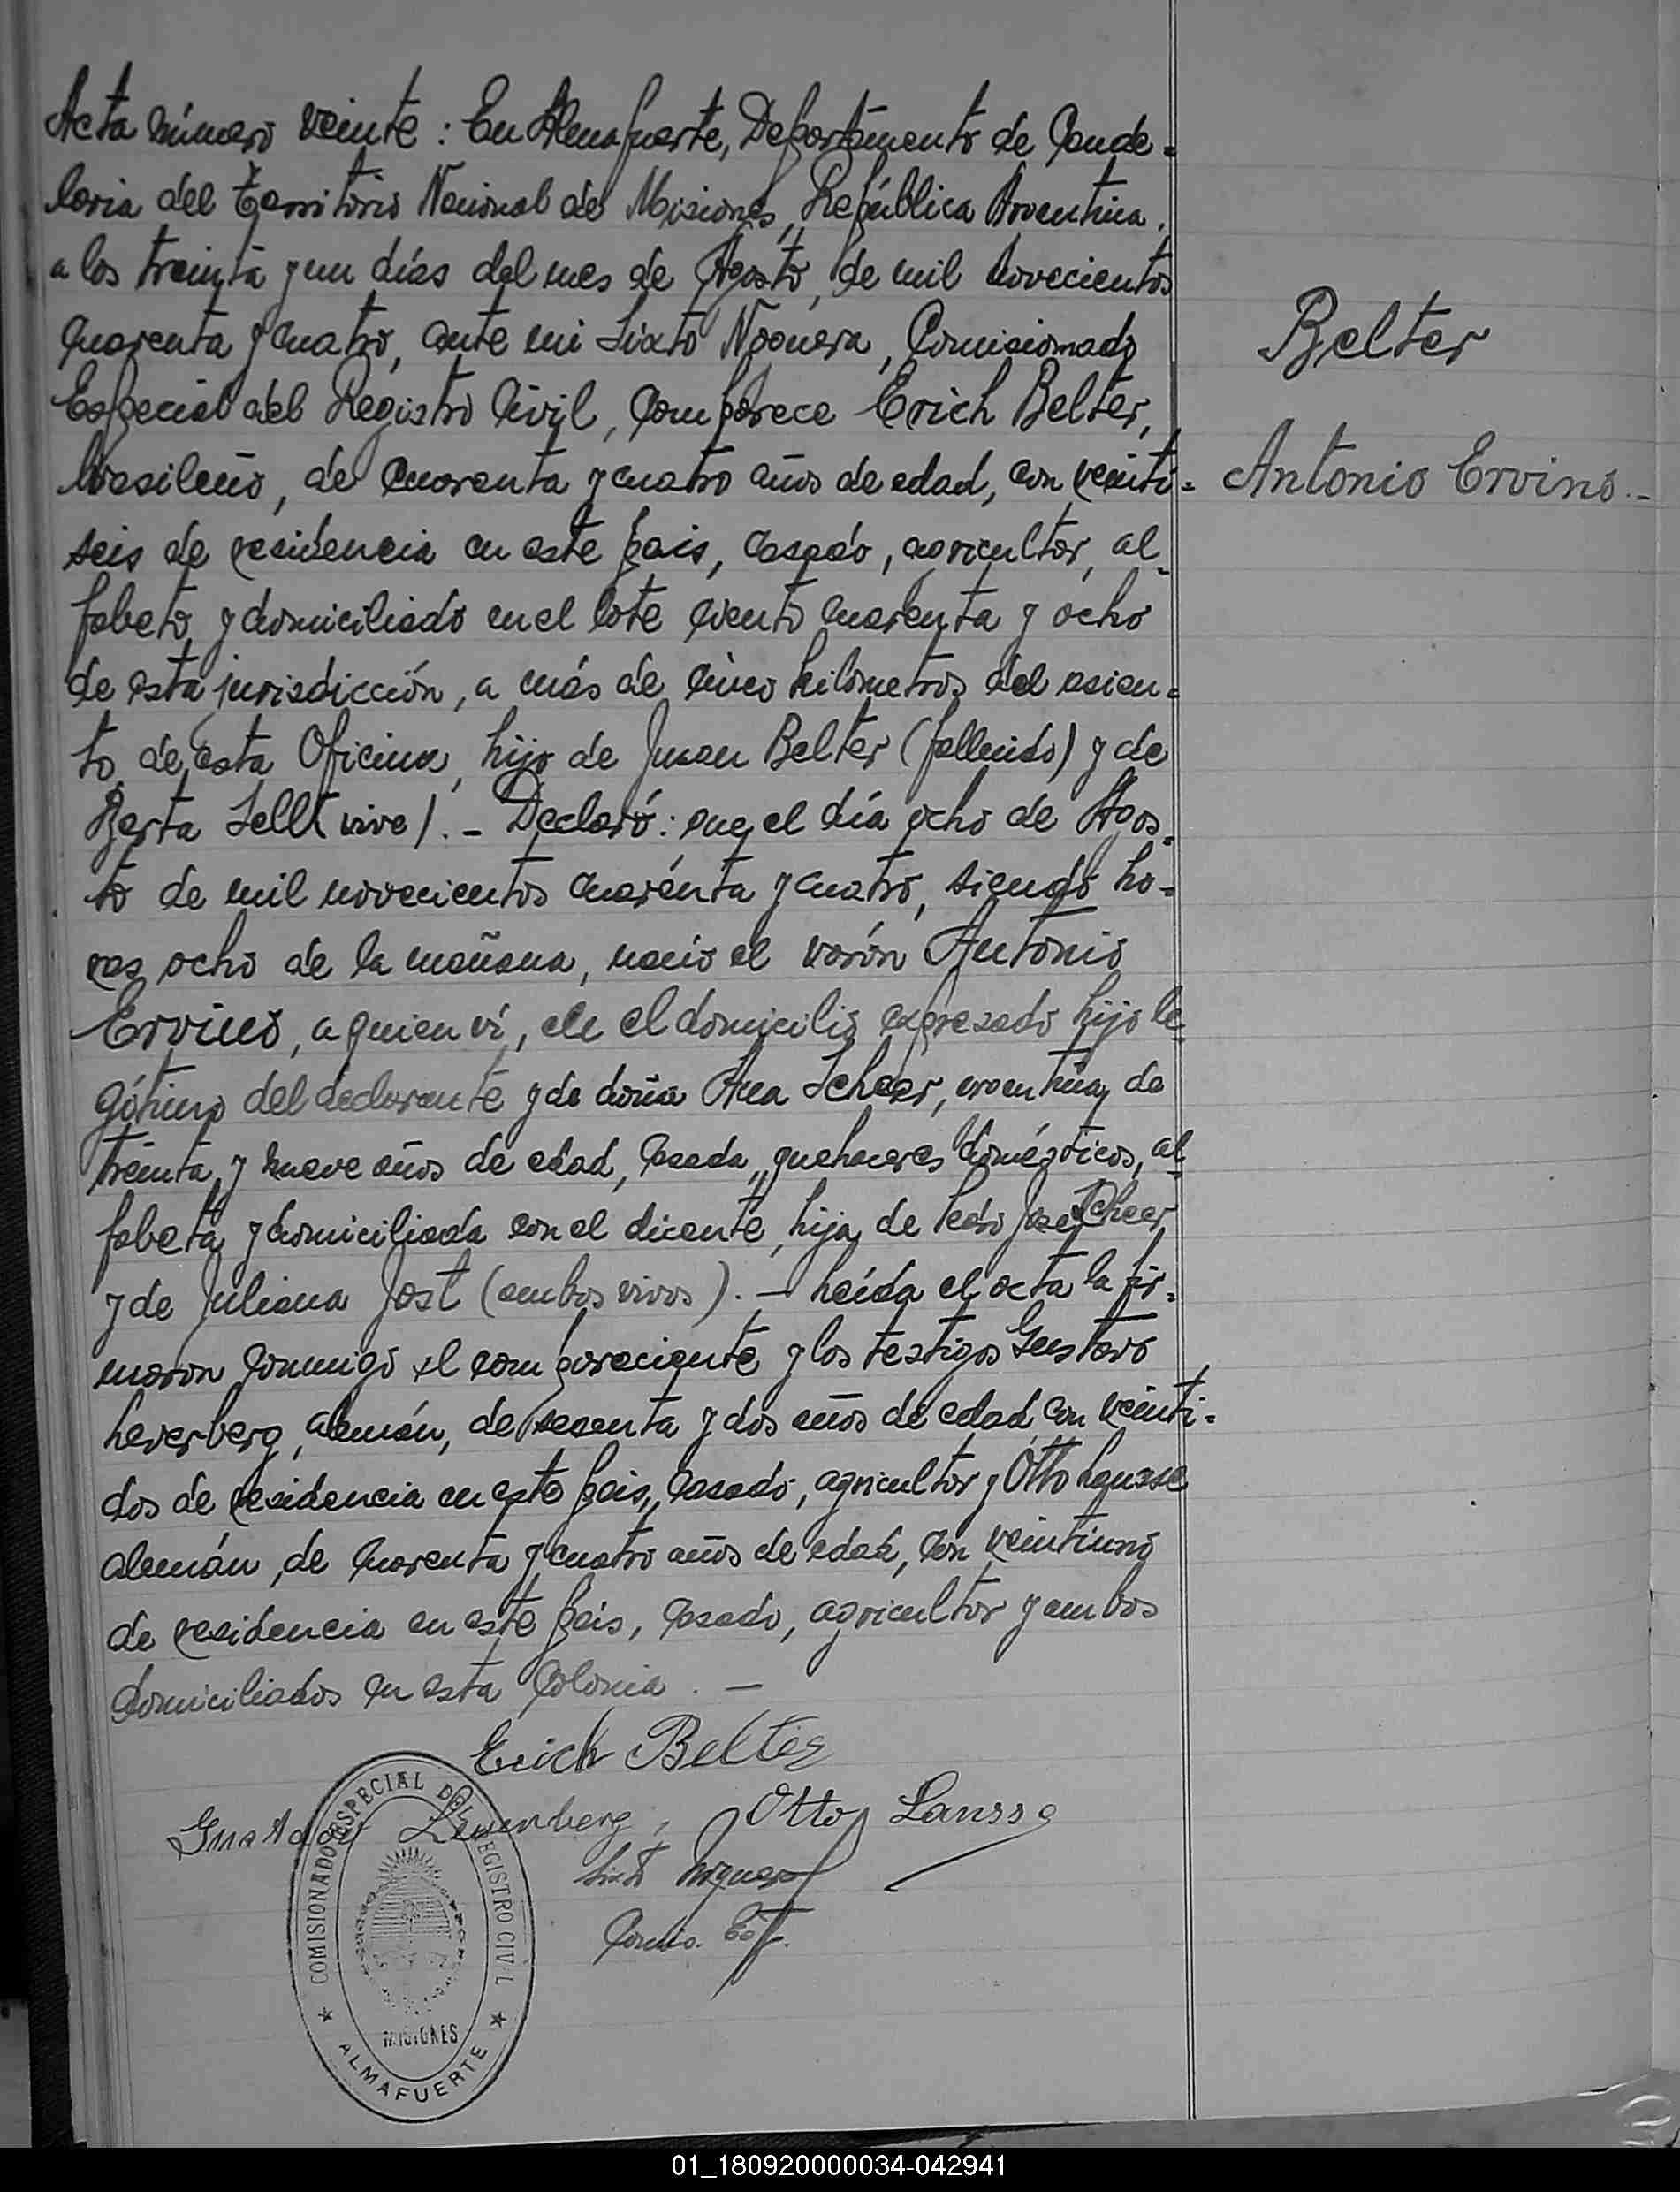 Acta número veinte: En Almafuerte, Departamento de Cande=
laria del Territorio Nacional de Misiones, República Argentina,
a los treinta y un días del mes de Agosto, de mil novecientos
cuarenta y cuatro, ante mi Sixto Noguera, Comisionado
Especial del Registro Civil, comparece Erich Belter,
brasileño, de cuarenta y cuatro años de edad, con veinti=
seis de residencia en este pais, casado, agricultor, al_
fabeto, y domiciliado en el lote ciento cuarenta y ocho
de esta jurisdicción, a más de cinco kilometros del asien=
to de esta Oficina, hijo de Juan Belter (fallecido) y de
Berta Sell (vive). - Declaró: que el día ocho de Agos=
to de mil novecientos cuarenta y cuatro, siendo ho=
ras ocho de la mañana, nació el varón Antonio
Ervino, a quien ví, en el domicilio expresado hijo le_
gítimo del declarante y de doña Ana Scheer, argentina, de
treinta y nueve años de edad, casada, quehaceres domésticos, al_
fabeta y domiciliada con el dicente, hija de Pedro José Scheer,
y de Juliana Jost (ambos vivos). - Leída el acta la fir=
maron conmigo el compareciente y los testigos Gustavo
Leverberg, alemán, de sesenta y dos años de edad, con veinti=
dos de residencia en este pais, casado, agricultor y Otto
alemán, de cuarenta y cuatro años de edad, con veintiuno
de residencia en este pais, casado, agricultor y ambos
domiciliados en esta Colonia. -
Erich Belter
Otto
Sixto Noguera
Comis. Esp.
Belter
Antonio Ervino.-
COMISIONADO ESPECIAL DEL REGISTRO CIVIL
MISIONES
ALMAFUERTE
01_180920000034-042941